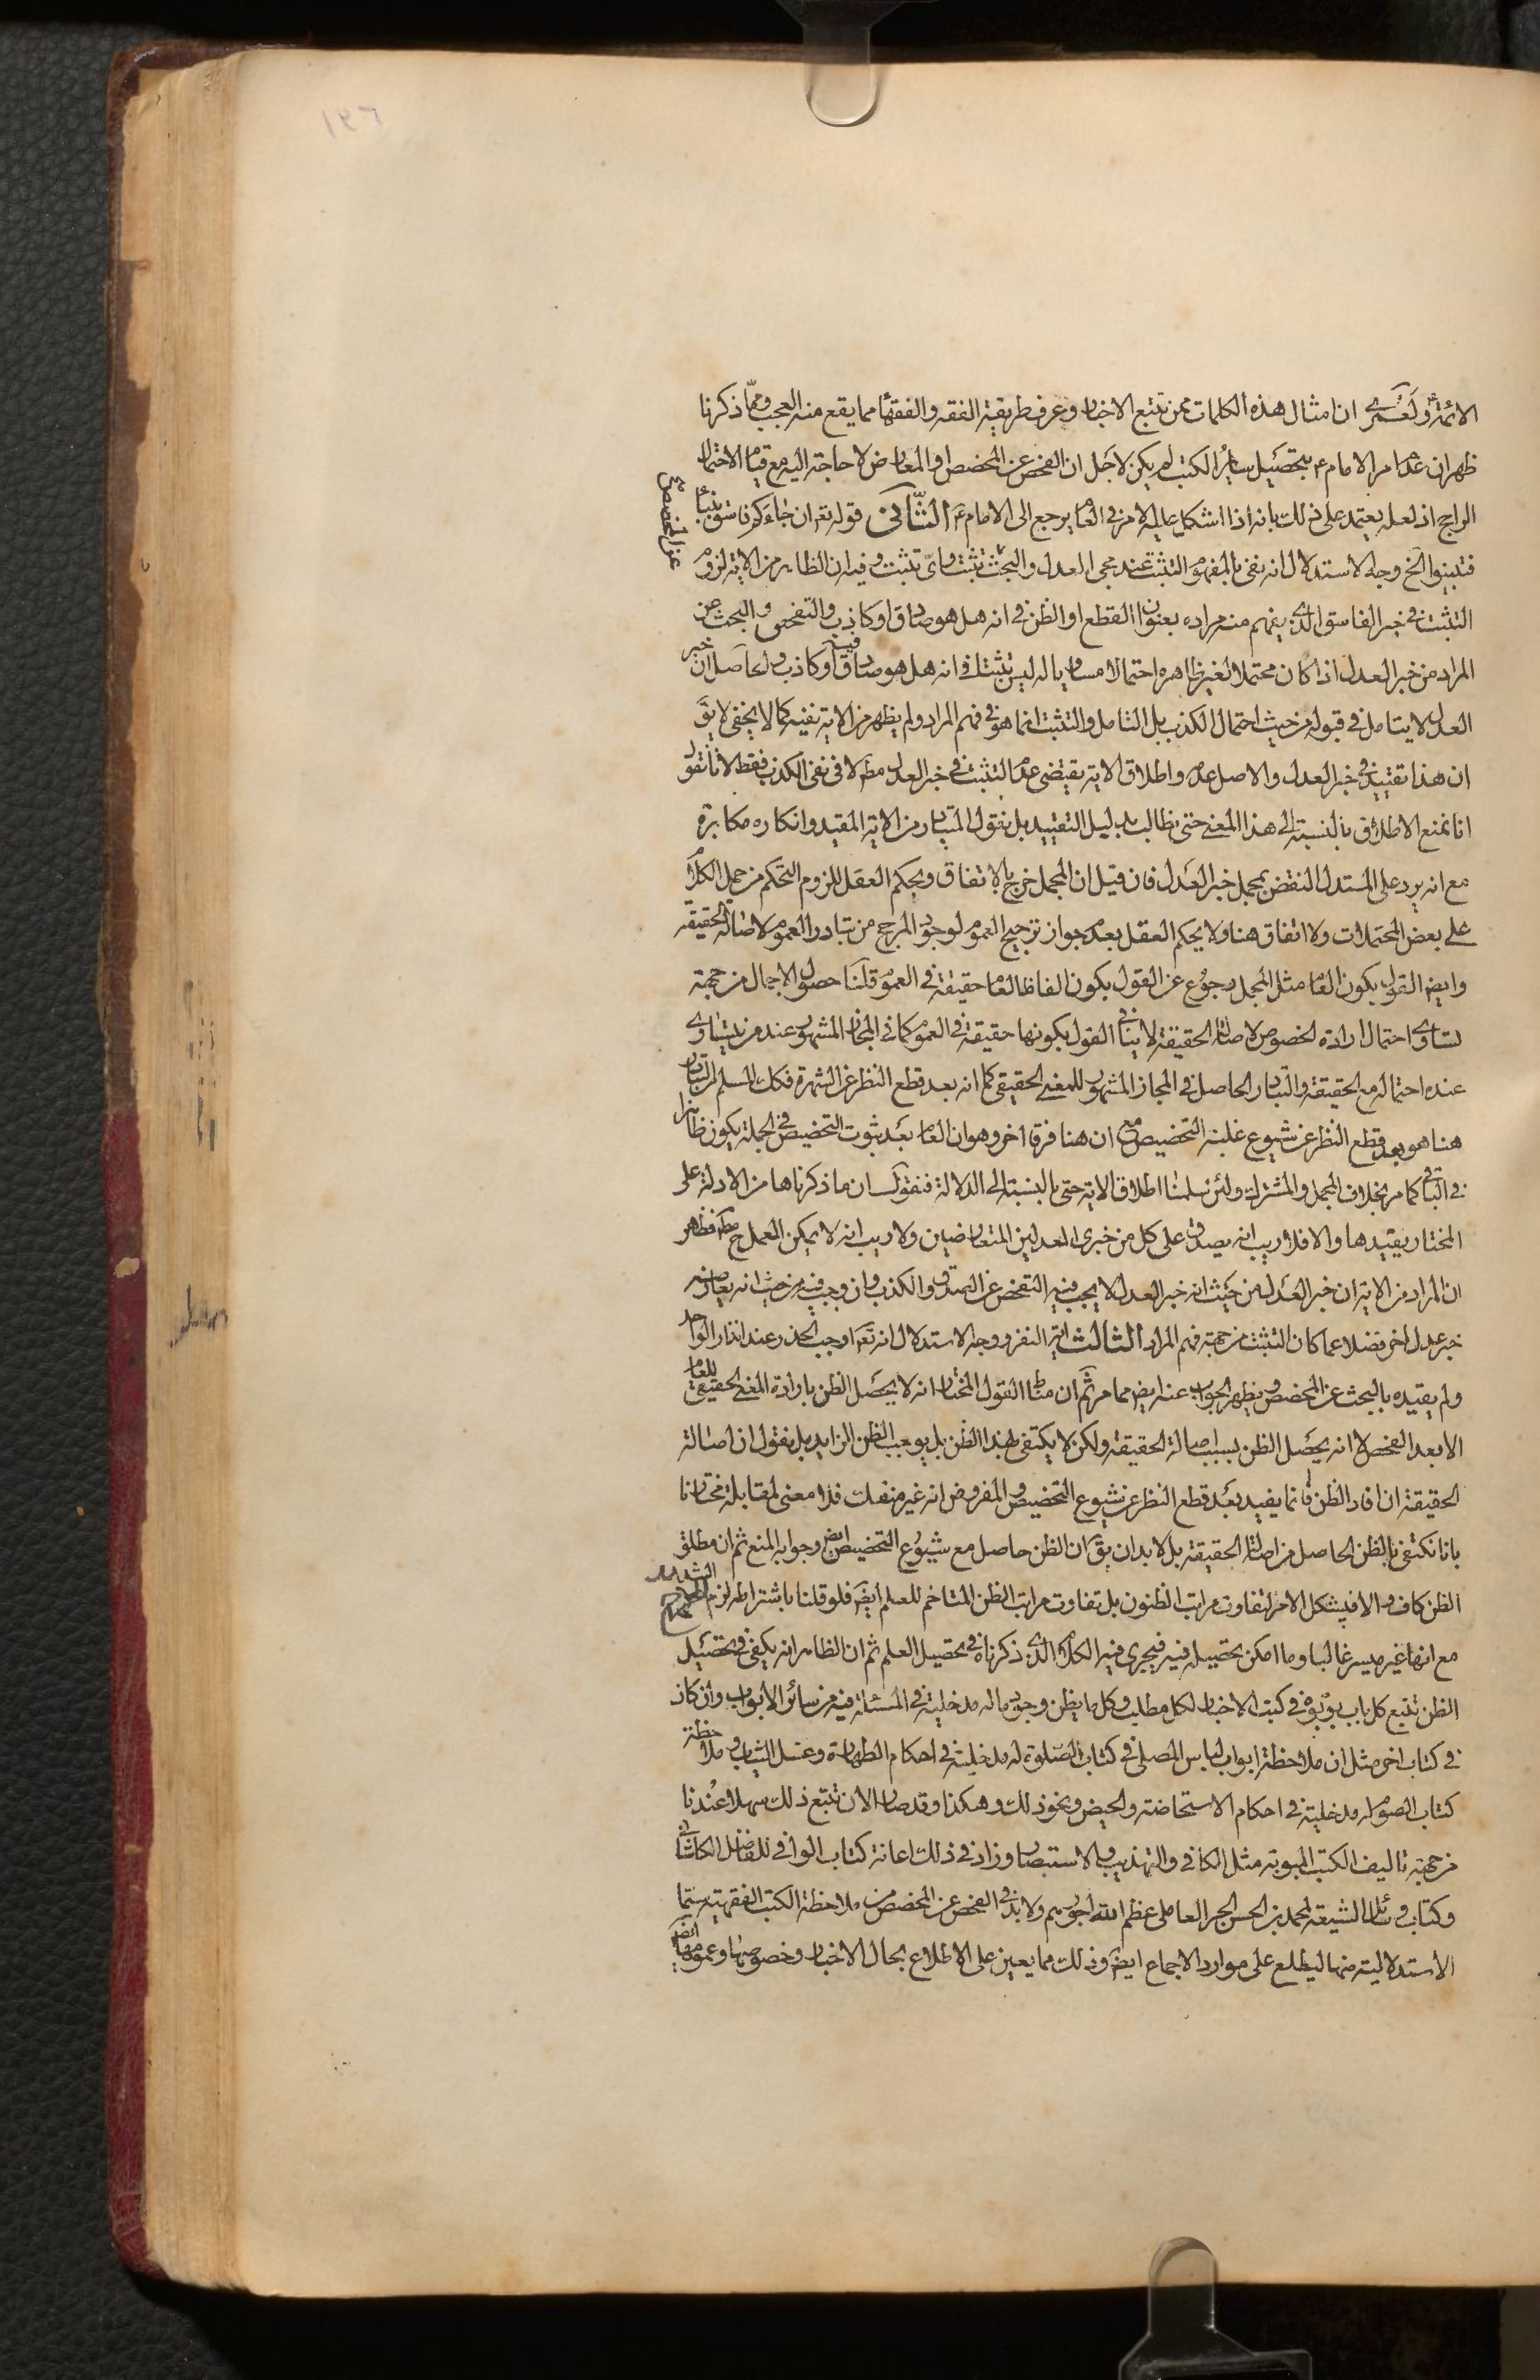 الائمة ع ولعمري ان امثال هذه الكلمات ممن تتبع الاخبار وعرف طريقة الفقه والفقهاء مما يقع منه العجب ومما ذكرنا
ظهر ان عدم امر الامام ع بتحصيل ساير الكتب لم يكن لاجل ان الفحص عن المخصص او المعارض لا حاجة اليه مع قيام الاحتمال
الراجح اذ لعله يعتمد على ذلك بانه اذا اشكل عليه الامر في العام يرجع الى الامام ع الثاني قوله تعم ان جاءكم فاسق بنباء
فتبينوا الخ وجه الاستدلال انه نفى بالمفهوم التثبت عند مجئ العدل والبحث تثبت واي تثبت وفيه ان الظاهر من الاية لزوم
التثبت في خبر الفاسق الذي يفهم منه مراده بعنوان القطع او الظن في انه هل هو صادق او كاذب والتفحص والبحث عن
المراد من خبر العدل اذا كان محتملا لغير ظاهره احتمالا مساويا له ليس تثبتا في انه هل هو صادق فيه او كاذب والحاصل ان خبر
العدل لا يتامل في قبوله من حيث احتمال الكذب بل التامل والتثبت انما هو في فهم المراد ولم يظهر من الاية نفيه كما لا يخفى لا يق
ان هذا تقييد في خبر العدل والاصل عدمه واطلاق الاية يقتضي عدم التثبت في خبر العدل مط لا في نفي الكذب فقط لانا نقول
انا نمنع الاطلاق بالنسبة الى هذا المعنى حتى يطالب بدليل التقييد بل نقول المتبادر من الاية المقيد وانكاره مكابرة
مع انه يرد على المستدل النقض بمجمل خبر العدل فان قيل ان المجمل خرج بالاتفاق وبحكم العقل للزوم التحكم من حمل الكلام
على بعض المحتملات ولا اتفاق هنا ولا يحكم العقل بعدم جواز ترجيح العموم لوجود المرجح من تبادر العموم لاصالة الحقيقة
وايض القول بكون العام مثل المجمل رجوع عن القول بكون الفاظ العام حقيقة في العموم قلنا حصول الاجمال من جهة
تساوي احتمال ارادة الخصوص لاصالة الحقيقة لا ينافي القول بكونها حقيقة في العموم كما في المجاز المشهور عند من يتساوى
عنده احتماله مع الحقيقة والتبادر الحاصل في المجاز المشهور للمعنى الحقيقي كما انه بعد قطع النظر عن الشهرة فكك المسلم من التبادر
هنا هو بعد قطع النظر عن شيوع غلبة التخصيص مع ان هنا فرقا اخر وهو ان العام بعد ثبوت التخصيص في الجملة يكون ظاهرا
في الباقي كما مر بخلاف المجمل والمشترك ولئن سلمنا اطلاق الاية حتى بالنسبة الى الدلالة فنقول ان ما ذكرناها من الادلة على
المختار يقيدها والا فلا ريب انه يصدق على كل من خبري العدلين المتعارضين ولا ريب انه لا يمكن العمل ح مط فظهر
ان المراد من الاية ان خبر العدل من حيث انه خبر العدل لا يجب فيه التفحص عن الصدق والكذب وان وجب فيه من حيث انه يعارضه
خبر عدل اخر فضلا عما كان التثبت من جهة فهم المراد الثالث اية النفر ووجه الاستدلال انه تعم اوجب الحذر عند انذار الواحد
ولم يقيده بالبحث عن المخصص ويظهر الجواب عنه ايض مما مر ثم ان مناط القول المختار انه لا يحصل الظن بارادة المعنى الحقيقي للعام
الا بعد الفحص لا انه يحصل الظن بسبب اصالة الحقيقة ولكن لا يكتفى بهذا الظن بل يوجب الظن الزايد بل نقول ان اصالة
الحقيقة ان افاد الظن فانما يفيد بعد قطع النظر عن شيوع التخصيص والمفروض انه غير منفك فلا معنى لمقابلة مختارنا
بانا نكتفي بالظن الحاصل من اصالة الحقيقة بل لا بد ان يق ان الظن حاصل مع شيوع التخصيص ايض وجوابه المنع ثم ان مطلق
الظن كاف والا فيشكل الامر لتفاوت مراتب الظنون بل تفاوت مراتب الظن المتاخم للعلم ايض فلو قلنا باشتراطه لزم الحرج الشديد
مع انها غير ميسر غالبا وما امكن تحصيله فيه فيجري فيه الكلام الذي ذكرناه في تحصيل العلم ثم ان الظاهر انه يكفي في تحصيل
الظن تتبع كل باب بوبوه في كتب الاخبار لكل مطلب وكل ما يظن وجود ماله مدخلية في المسئلة فيه من سائر الابواب وان كان
في كتاب اخر مثل ان ملاحظة ابواب لباس المصلي في كتاب الصلوة له مدخلية في احكام الطهارة وغسل الثياب وملاحظة
كتاب الصوم له مدخلية في احكام الاستحاضة والحيض ونحو ذلك وهكذا وقد صار الان تتبع ذلك سهلا عندنا
من جهة تاليف الكتب المبوبة مثل الكافي والتهذيب والاستبصار وزاد في ذلك اعانة كتاب الوافي للفاضل الكاشاني
وكتاب وسائل الشيعة لمحمد بن الحسن الحر العاملي عظم الله اجورهم ولا بد في الفحص عن المخصص من ملاحظة الكتب الفقهية سيما
الاستدلالية منها ليطلع على موارد الاجماع ايض وذلك مما يعين على الاطلاع بحال الاخبار وخصوصها وعمومها ايض